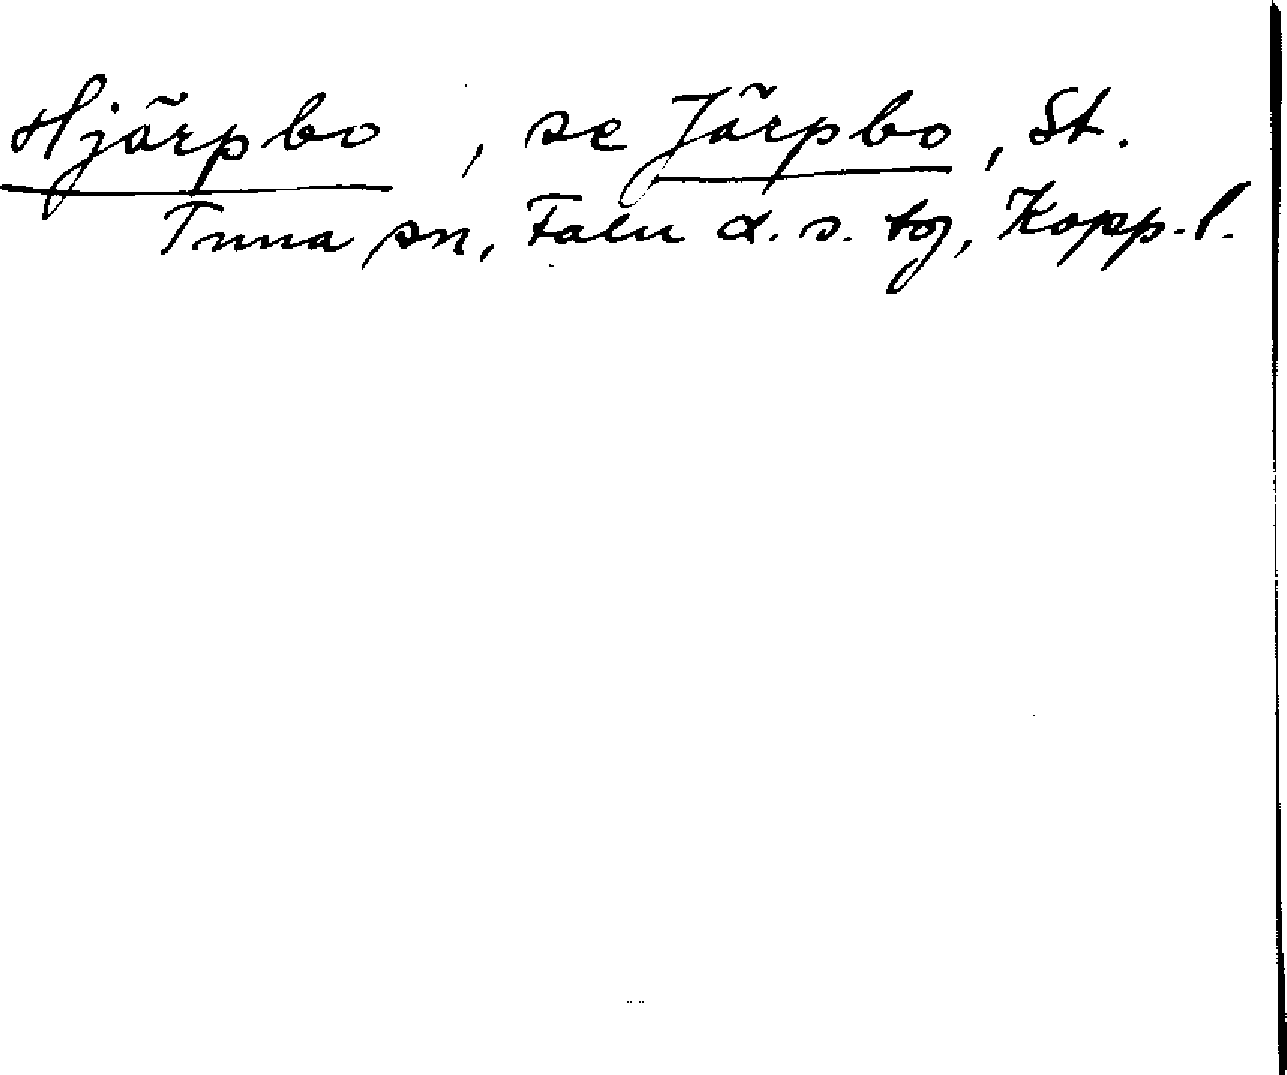 Hjärpbo, se Järpbo, St.
Tuna sn, Falu d. s. tg, Kopp. l.